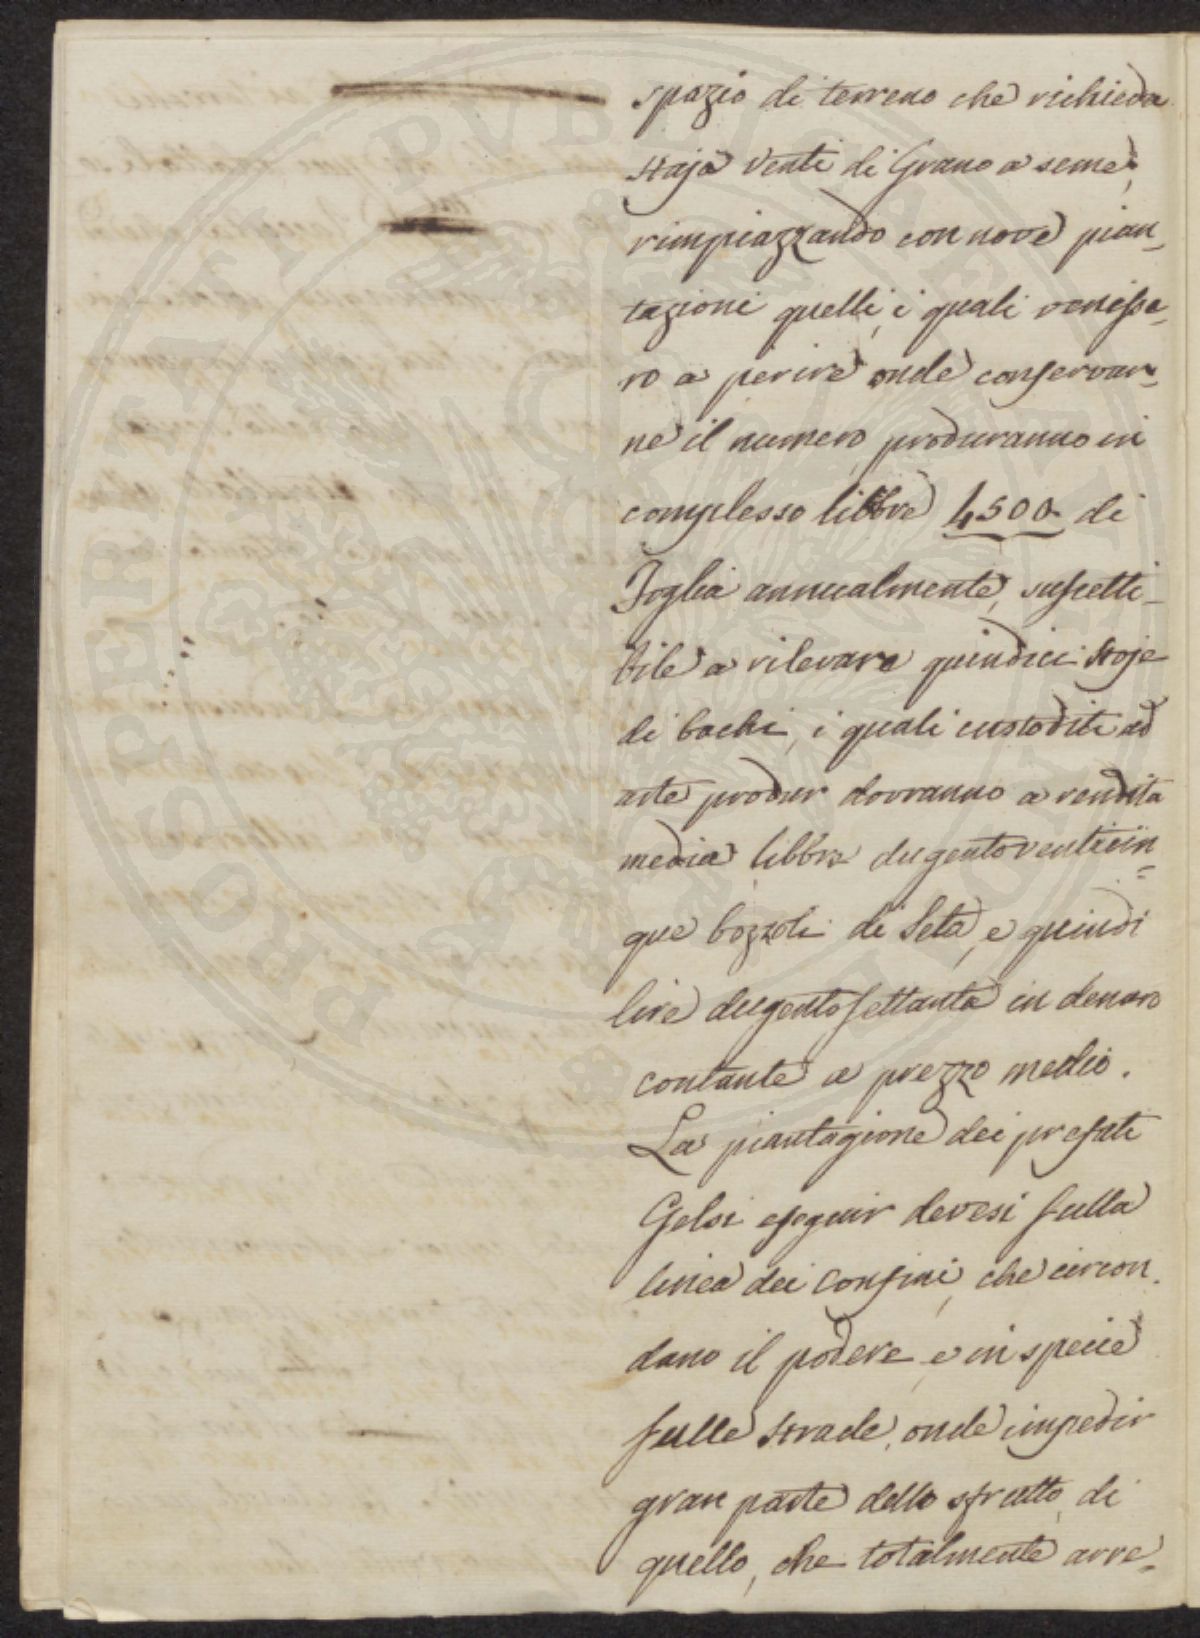 spazio di terreno che richieda
staja Venti di Grano a seme,
rimpiazzando con nove pian-
tazioni quelli, i quali venisse-
ro a perire onde conservar-
ne il numero, produranno in
complesso libbre 4500. di
Foglia annualmente, suscetti-
bile a rilevare quindici stoje
di bachi, i quali custoditi ad
arte produr dovranno a rendita
media libbre dugentoventicin=
que bozzoli di Seta, e quindi
lire dugentosettanta in denaro
contante a prezzo medio.
La piantagione dei prefati
Gelsi eseguir devesi sulla
linea dei Confini, che circon-
dano il podere, e in specie
sulle strade, onde impedir
gran parte dello sfrutto, di
quello, che totalmente arre-
PROSPERITATI PVBLICAE AVGENDAE